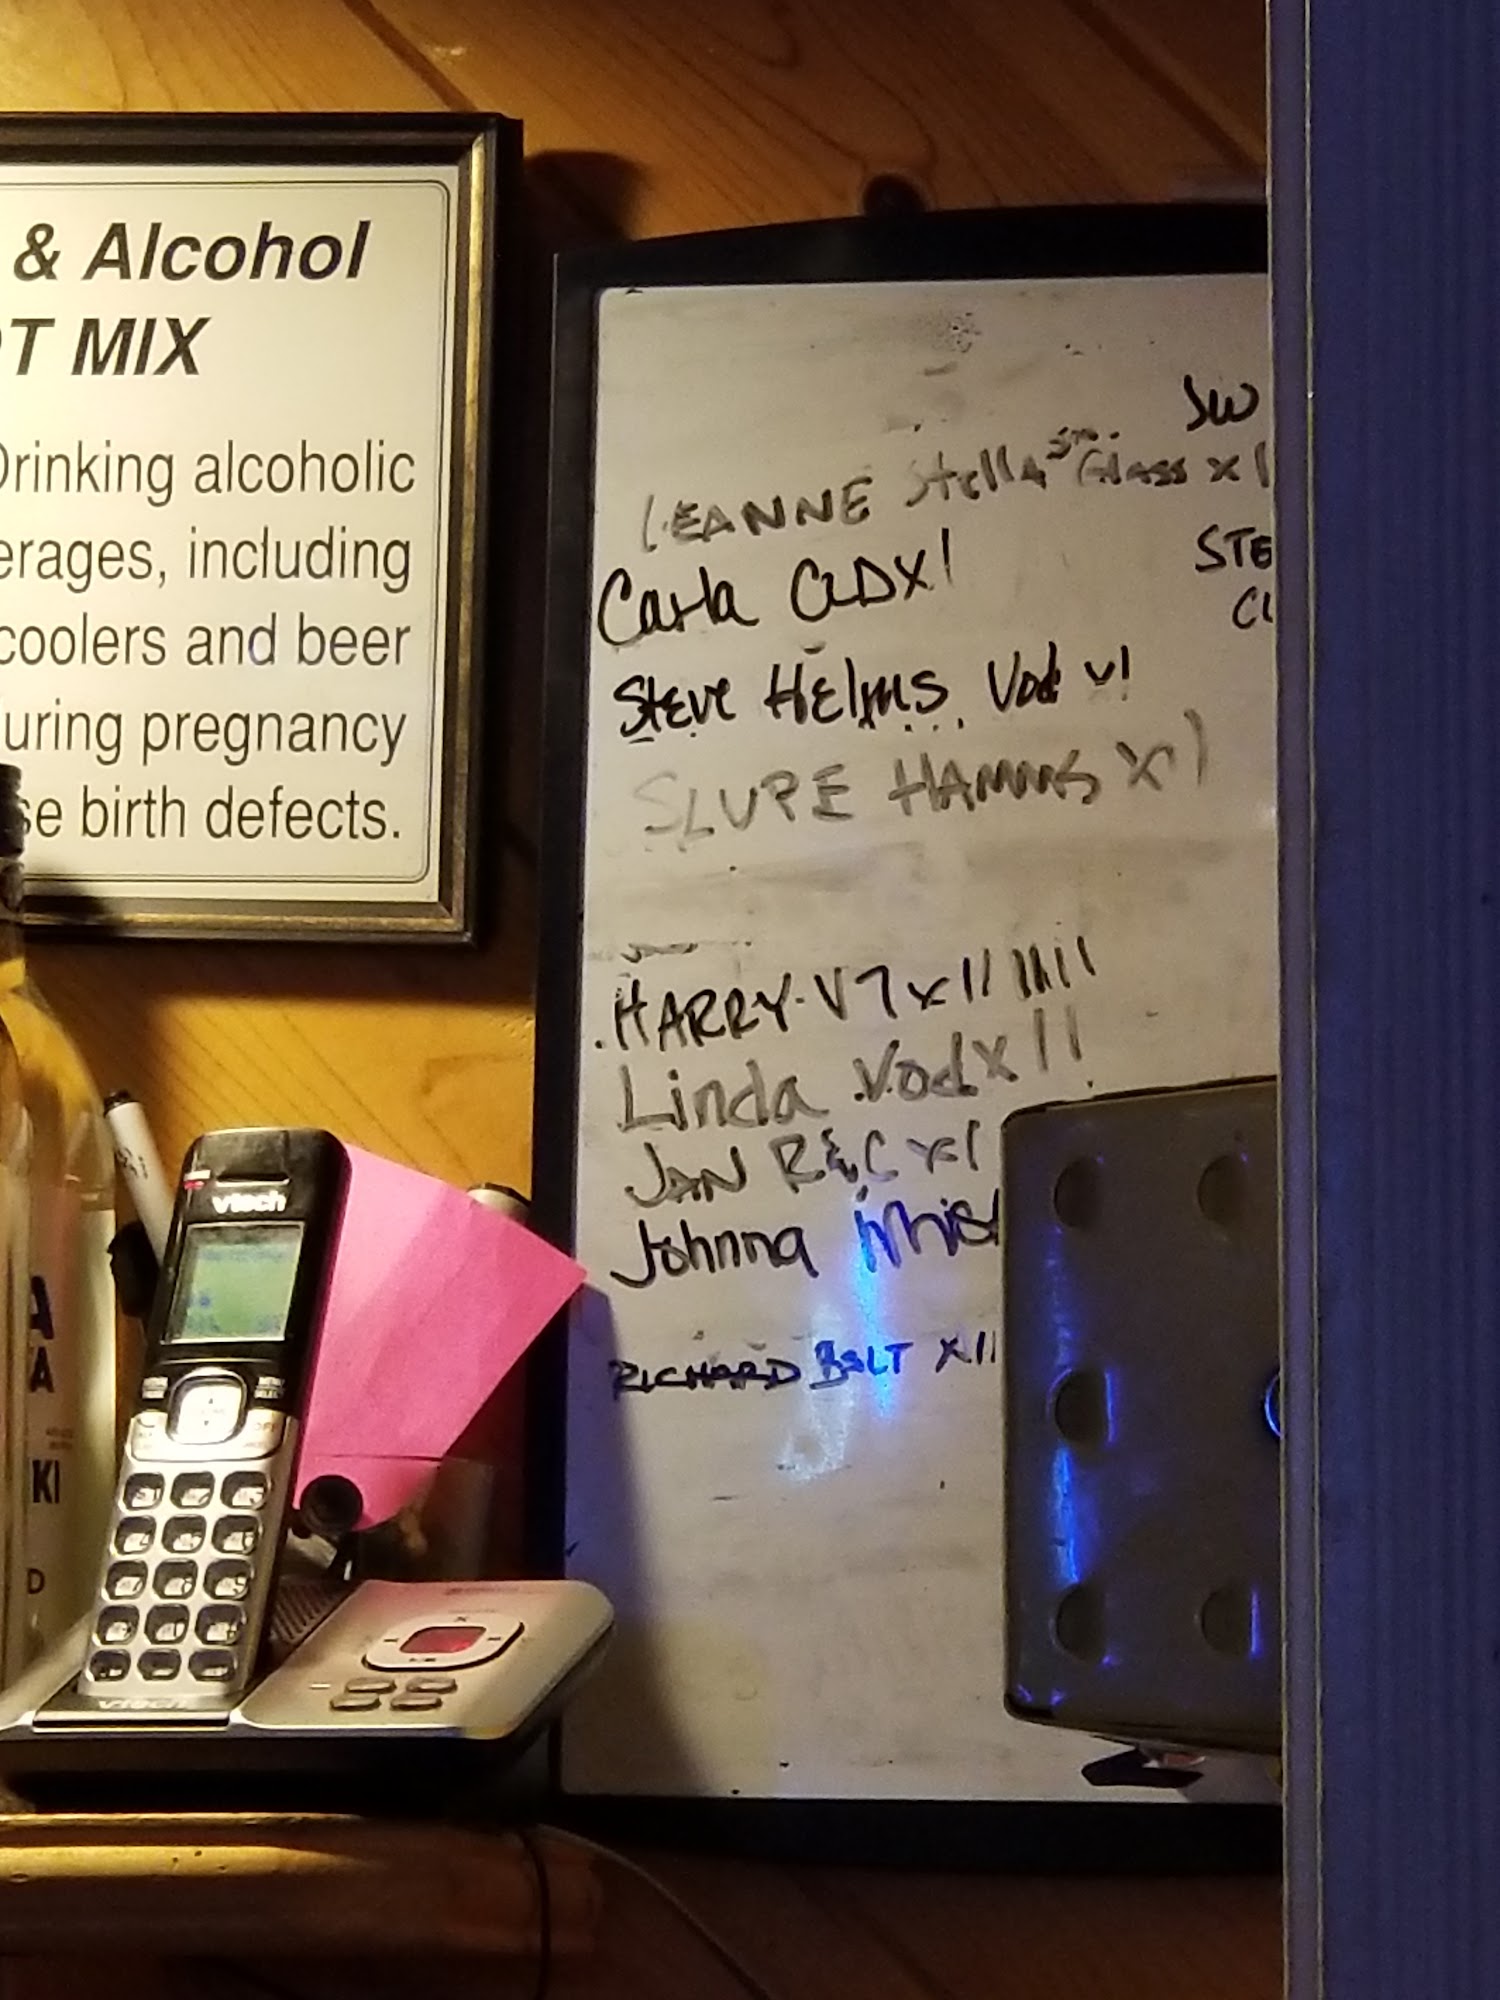 & Alcohol
OT MIX
Drinking alcoholic
erages, including
coolers and beer
uring pregnancy
se birth defects.
JW
LEANNE Stella Sm. Glass x|
Carla CLD x|
STE
CL
Steve Helms Vod x|
SLUPE HAMMS x|
HARRY-V7 x|| |||||
Linda Vod x||
JAN R&C x|
Johnna
RICHARD BOLT x||
vtech
vtech
A
TA
KI
D